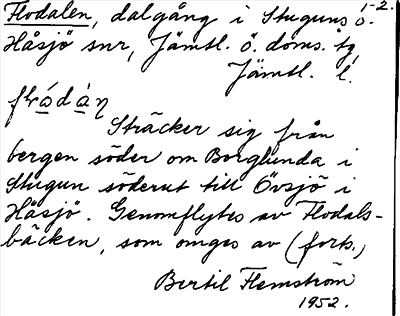 1-2.
Flodalen, dalgång i Stuguns o.
Håsjö snr, Jämtl. ö. doms. tg,
Jämtl. l.
Sträcker sig från
bergen söder om Borglunda i
Stugun söderut till Övsjö i
Håsjö. Genomflytes av Flodals-
bäcken, som omges av (forts.)
Bertil Flemström
1952.